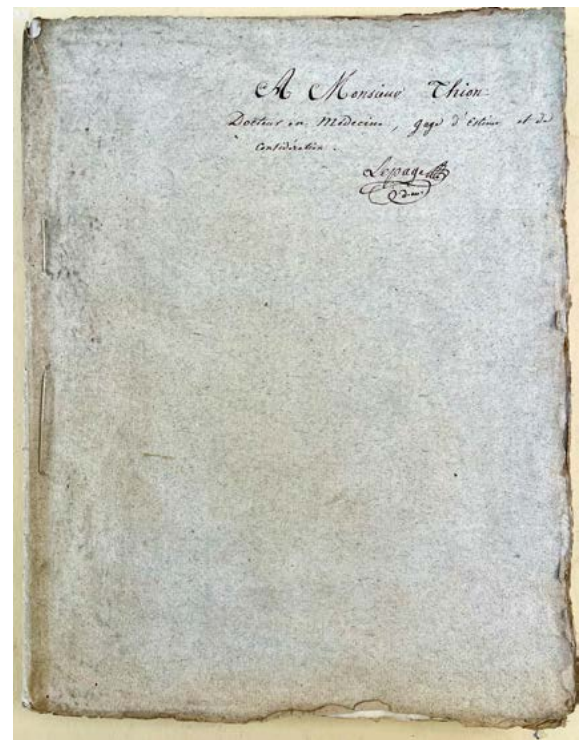 A Monsieur Thion
Docteur en Médecine, gage d'Estime et de
Considération.
Lepage